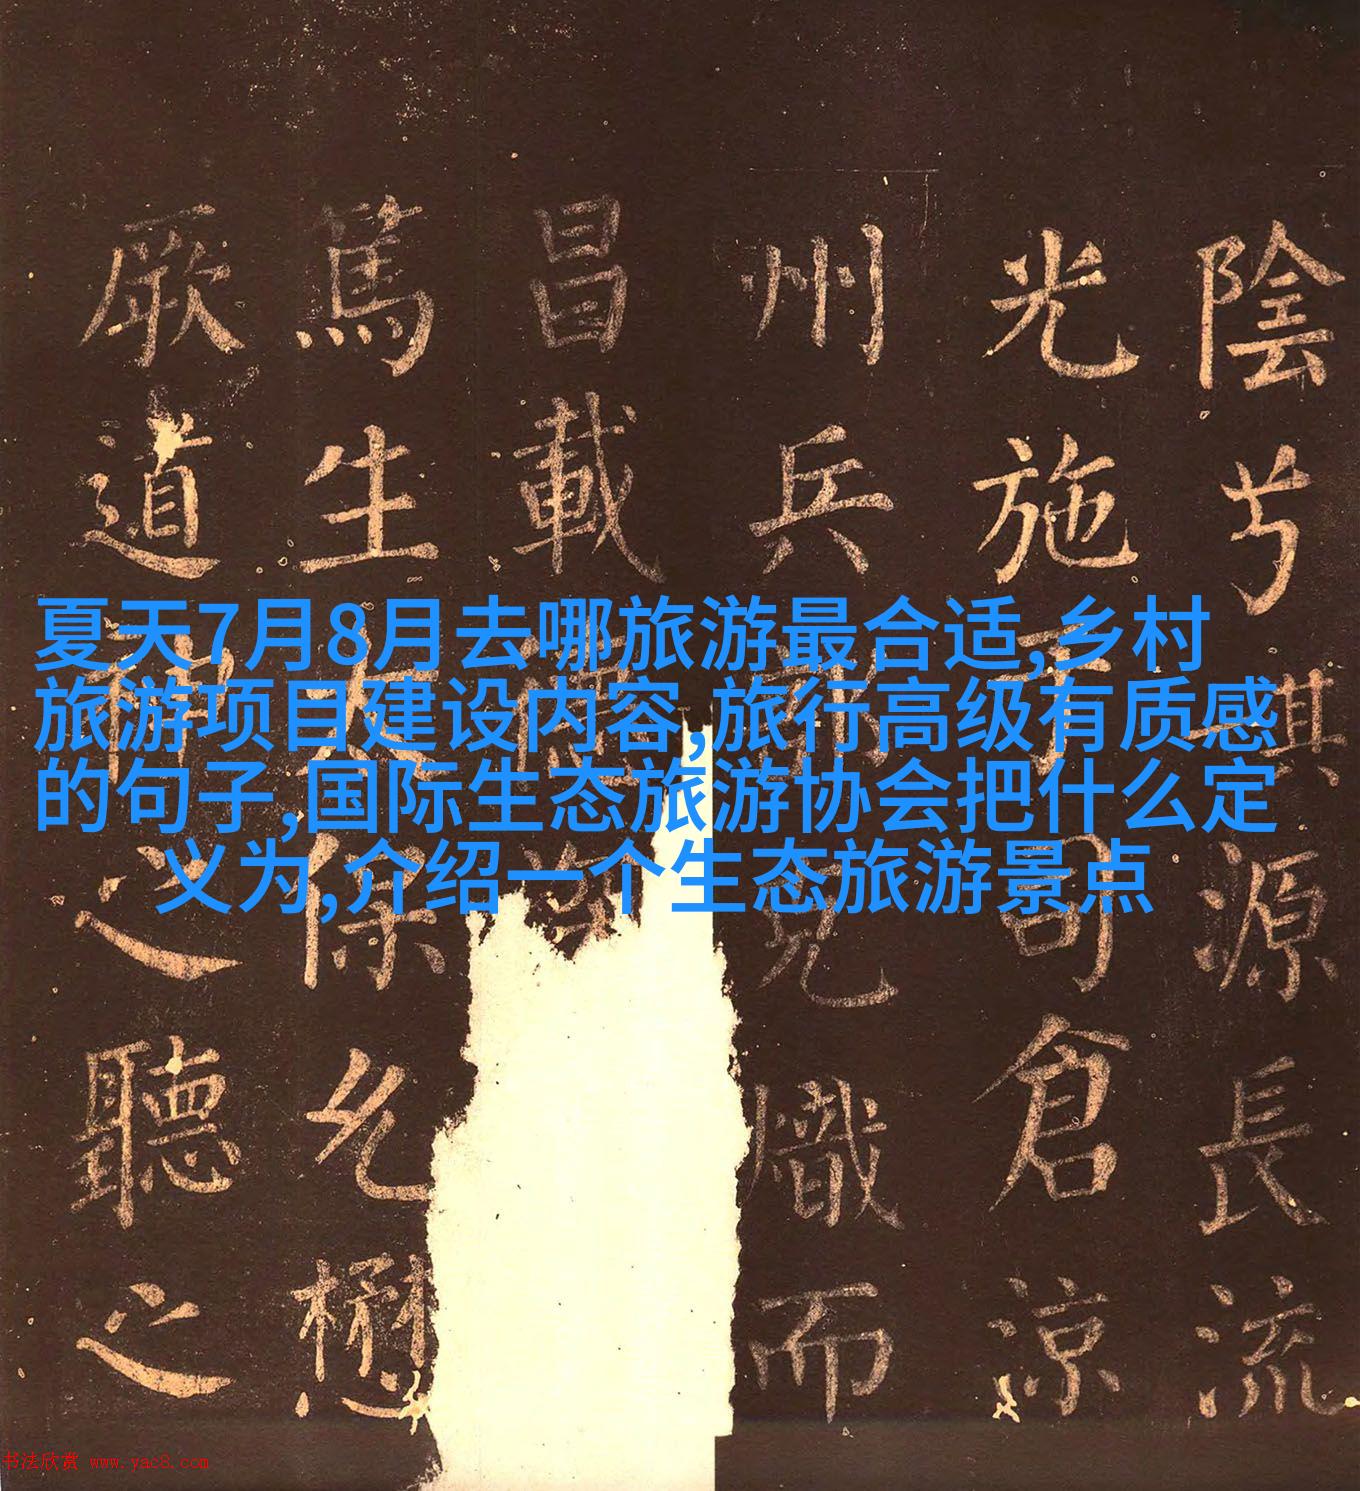 夏天7月8月去哪旅游最合适,乡村
旅游项目建设内容,旅行高级有质感
的句子,国际生态旅游协会把什么定
义为,介绍一个生态旅游景点
陰兮源長流
光施司倉涼
州兵熾而
昌載
篤生保允懋
厥道神之聽之
书法欣赏 www.yac8.com